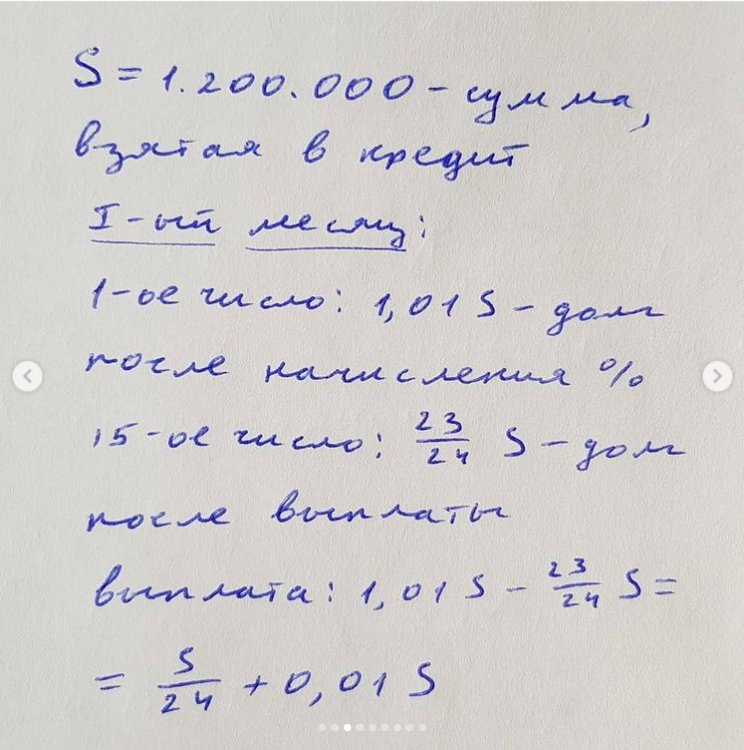 S = 1.200.000 – сумма,
взятая в кредит
I-ый месяц:
1-ое число: 1,01 S – долг
после начисления %
15-ое число: 23/24 S – долг
после выплаты
выплата: 1,01 S – 23/24 S =
= S/24 + 0,01 S